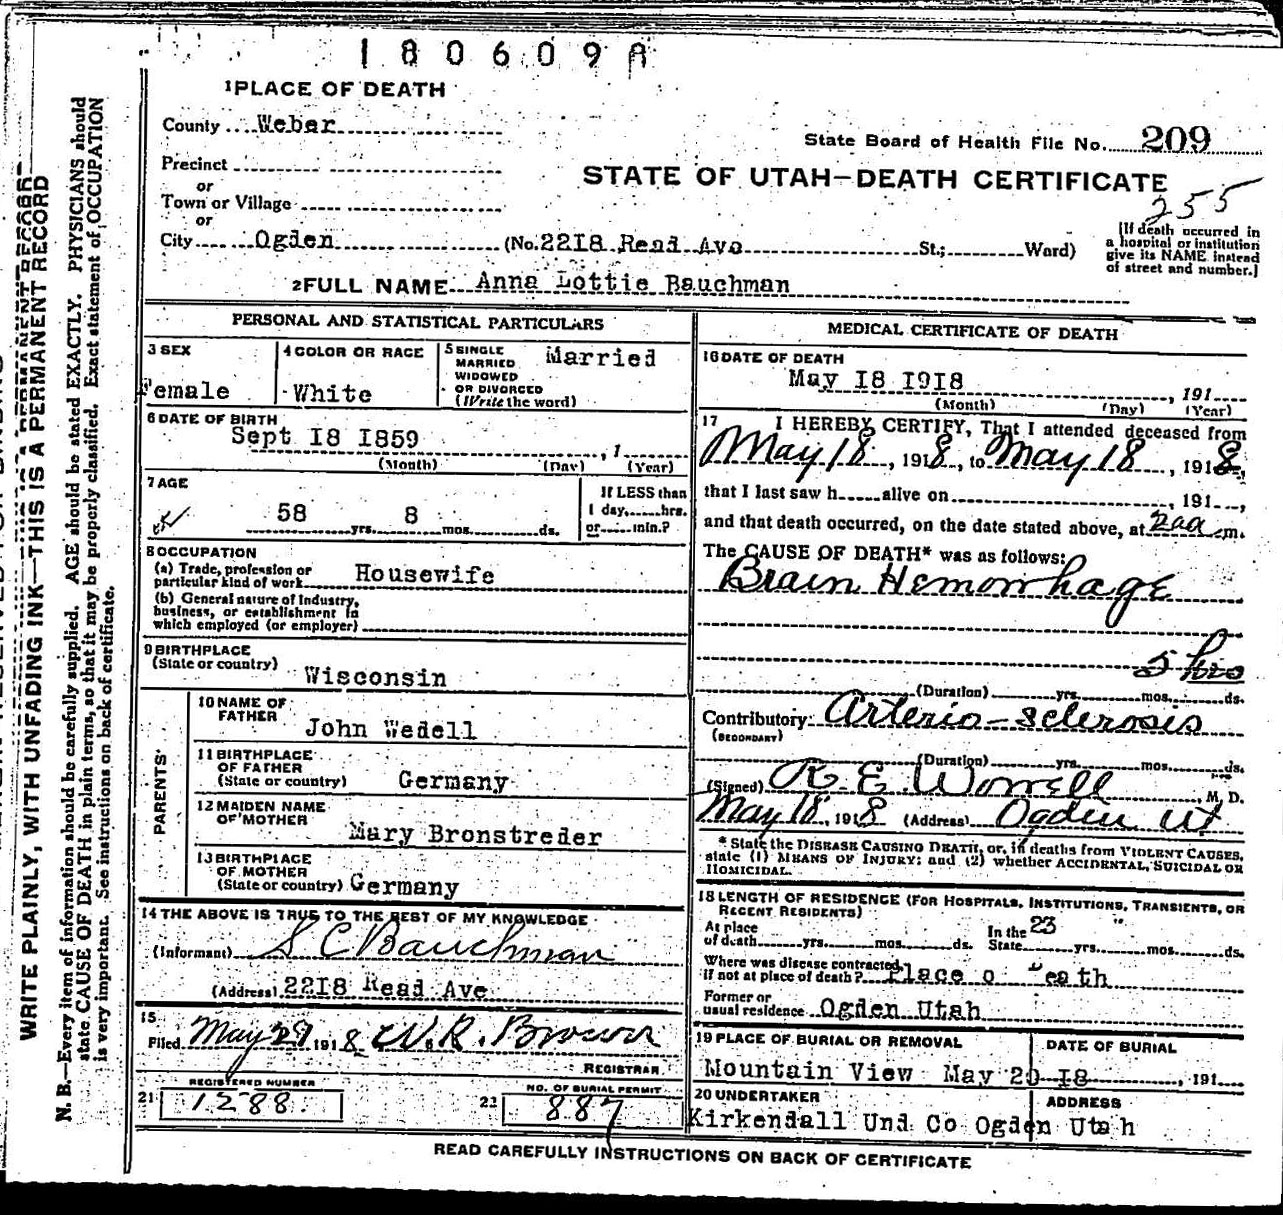 180609A
1 PLACE OF DEATH
County Weber
State Board of Health File No. 209
Precinct
STATE OF UTAH—DEATH CERTIFICATE
or
Town or Village
255
or
City Ogden (No. 22I8 Read Ave St.; Ward)
[If death occurred in
a hospital or institution
give its NAME instead
of street and number.]
2 FULL NAME Anna Lottie Bauchman
PERSONAL AND STATISTICAL PARTICULARS
3 SEX
Female
4 COLOR OR RACE
White
5 SINGLE
MARRIED
WIDOWED
OR DIVORCED
(Write the word)
Married
6 DATE OF BIRTH
Sept I8 I859 , 1
(Month) (Day) (Year)
7 AGE
58 yrs. 8 mos. ds.
If LESS than
1 day, hrs.
or min.?
8 OCCUPATION
(a) Trade, profession or
particular kind of work Housewife
(b) General nature of Industry,
business, or establishment in
which employed (or employer)
9 BIRTHPLACE
(State or country)
Wisconsin
PARENTS
10 NAME OF
FATHER
John Wedell
11 BIRTHPLACE
OF FATHER
(State or country) Germany
12 MAIDEN NAME
OF MOTHER
Mary Bronstreder
13 BIRTHPLACE
OF MOTHER
(State or country) Germany
14 THE ABOVE IS TRUE TO THE BEST OF MY KNOWLEDGE
(Informant) S C Bauchman
(Address) 22I8 Read Ave
15
Filed May 29 1918 W. R. Brown
REGISTRAR
REGISTERED NUMBER
21 1288
NO. OF BURIAL PERMIT
22 887
MEDICAL CERTIFICATE OF DEATH
16 DATE OF DEATH
May I8 I9I8 , 191
(Month) (Day) (Year)
17 I HEREBY CERTIFY, That I attended deceased from
May 18, 1918, to May 18, 1918,
that I last saw h alive on , 191 ,
and that death occurred, on the date stated above, at 2aa m.
The CAUSE OF DEATH* was as follows:
Brain Hemorrhage
5 hrs
(Duration) yrs. mos. ds.
Contributory Arterio-sclerosis
(SECONDARY)
(Duration) yrs. mos. ds.
(Signed) R. E. Worrell , M. D.
May 18, 1918 (Address) Ogden Ut
* State the DISEASE CAUSING DEATH, or, in deaths from VIOLENT CAUSES,
state (1) MEANS OF INJURY; and (2) whether ACCIDENTAL, SUICIDAL OR
HOMICIDAL.
18 LENGTH OF RESIDENCE (FOR HOSPITALS, INSTITUTIONS, TRANSIENTS, OR
RECENT RESIDENTS)
At place
of death yrs. mos. ds.
In the 23 "
State yrs. mos. ds.
Where was disease contracted,
if not at place of death? Place o Death
Former or
usual residence Ogden Utah
19 PLACE OF BURIAL OR REMOVAL
DATE OF BURIAL
Mountain View May 20 I8 , 191
20 UNDERTAKER
ADDRESS
Kirkendall Und Co Ogden Utah
READ CAREFULLY INSTRUCTIONS ON BACK OF CERTIFICATE
WRITE PLAINLY, WITH UNFADING INK—THIS IS A PERMANENT RECORD
N. B.—Every item of information should be carefully supplied. AGE should be stated EXACTLY. PHYSICIANS should
state CAUSE OF DEATH in plain terms, so that it may be properly classified. Exact statement of OCCUPATION
is very important. See instructions on back of certificate.